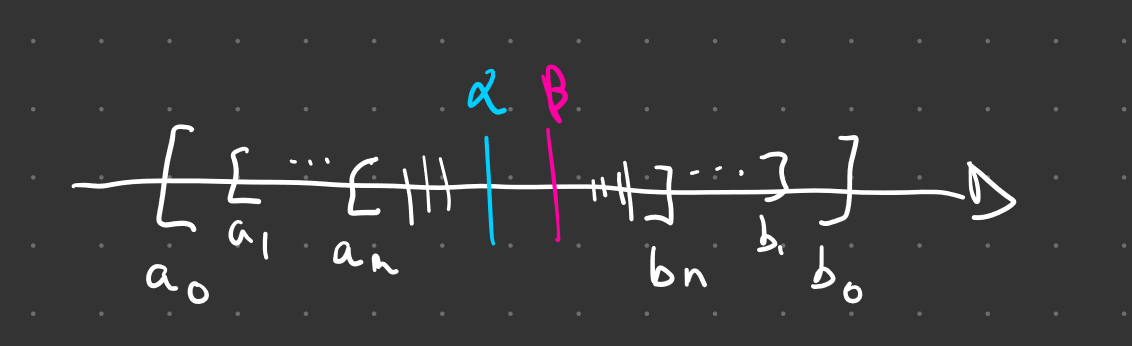 α β
[ [ ... [ ] ... ] ]
a₀ a₁ aₙ bₙ b₁ b₀